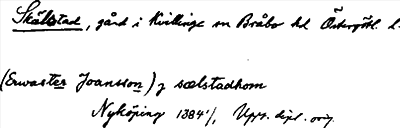 Skälstad, gård i Kvillinge sn Bråbo hd Östergötl. l.
(Erwaster Joansson) j sælstadhom
Nyköping 1384 1/1, Upps. dipl. orig.